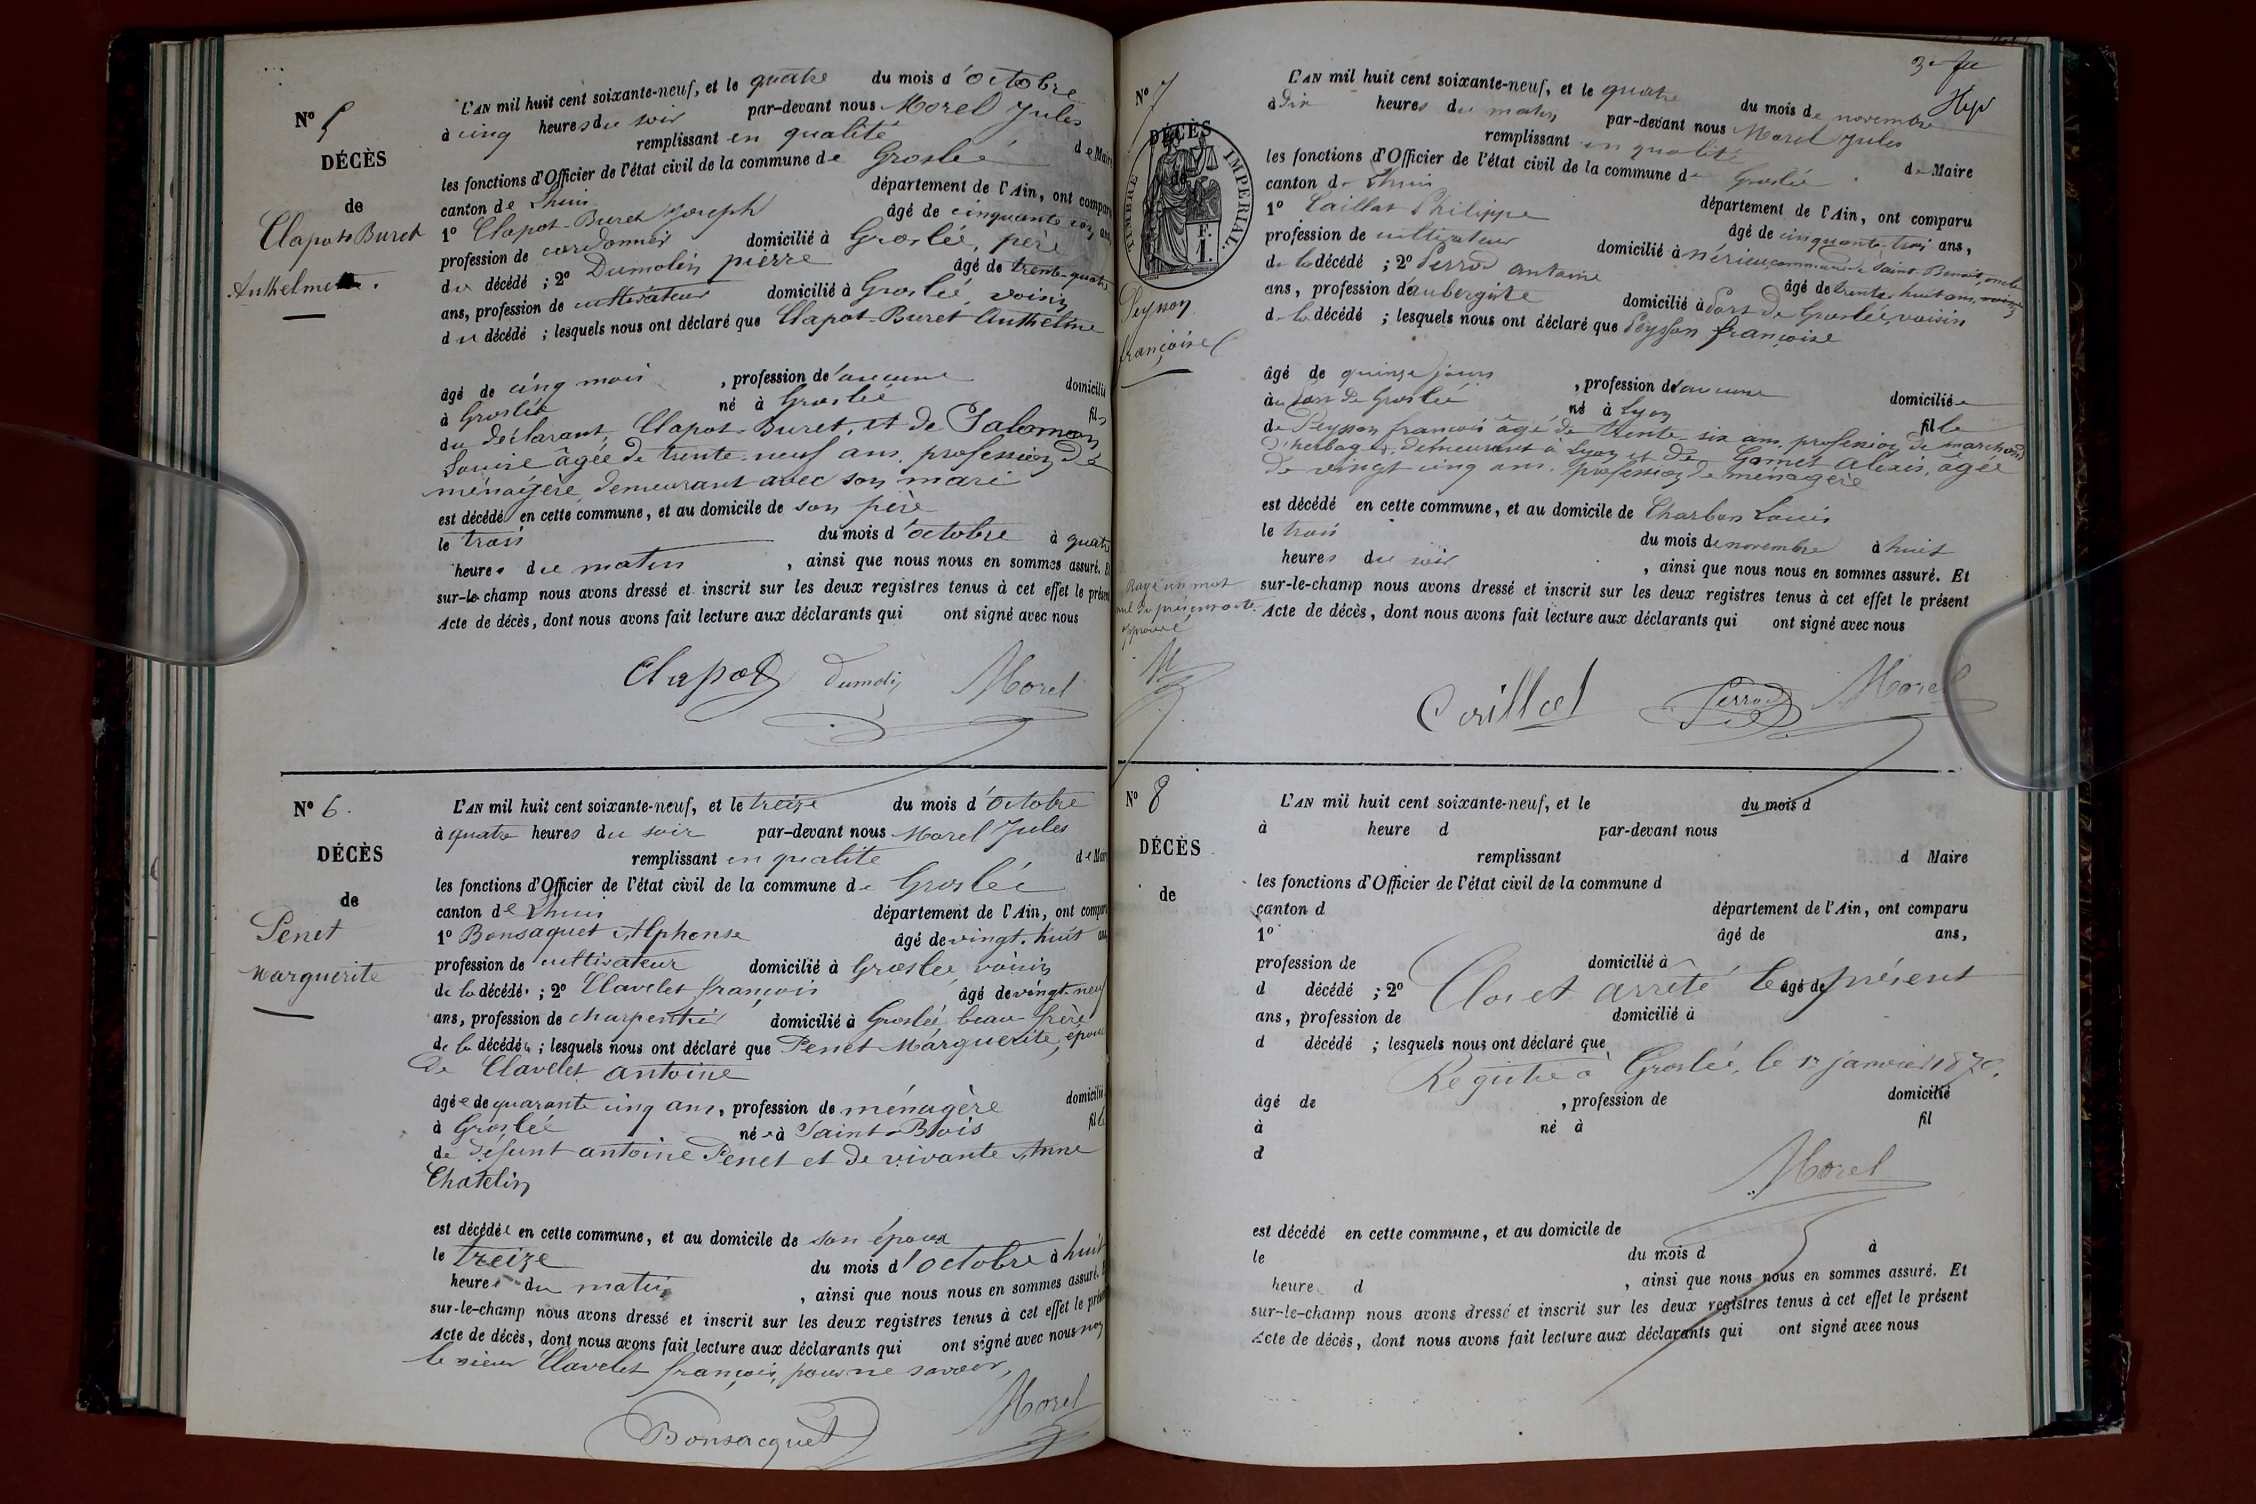 Nº 5
DÉCÈS
de
Clapot-Buret
Anthelme.
L'AN mil huit cent soixante-neuf, et le quatre du mois d'octobre
à cinq heures du soir par-devant nous Morel Jules
remplissant en qualité de Maire
les fonctions d'Officier de l'état civil de la commune de Groslée
canton de Lhuis département de l'Ain, ont comparu
1º Clapot-Buret Joseph âgé de cinquante ans,
profession de cordonnier domicilié à Groslée, père
du décédé ; 2º Dumolin pierre âgé de trente-quatre
ans, profession de cultivateur domicilié à Groslée, voisin
du décédé ; lesquels nous ont déclaré que Clapot-Buret Anthelme
âgé de cinq mois, profession d'aucune domicilié
à Groslée né à Groslée fils
du déclarant, Clapot-Buret, et de Salomon
Louise âgée de trente-neuf ans, profession de
ménagère, demeurant avec son mari
est décédé en cette commune, et au domicile de son père
le trois du mois d'octobre à quatre
heures du matin, ainsi que nous nous en sommes assuré. Et
sur-le-champ nous avons dressé et inscrit sur les deux registres tenus à cet effet le présent
Acte de décès, dont nous avons fait lecture aux déclarants qui ont signé avec nous
Clapot Dumolin Morel
Nº 6.
DÉCÈS
de
Penet
Marguerite
L'AN mil huit cent soixante-neuf, et le treize du mois d'octobre
à quatre heures du soir par-devant nous Morel Jules
remplissant en qualité de Maire
les fonctions d'Officier de l'état civil de la commune de Groslée
canton de Lhuis département de l'Ain, ont comparu
1º Bonsaquet Alphonse âgé de vingt-huit ans
profession de cultivateur domicilié à Groslée, voisin
de la décédé ; 2º Clavelet françois âgé de vingt-neuf
ans, profession de charpentier domicilié à Groslée, beau frère
de la décédée ; lesquels nous ont déclaré que Penet Marguerite, épouse
de Clavelet antoine
âgée de quarante cinq ans, profession de ménagère domiciliée
à Groslée née à Saint-Bois fille
de défunt antoine Penet et de vivante Anne
Chatelin
est décédée en cette commune, et au domicile de son époux
le treize du mois d'octobre à huit
heures du matin, ainsi que nous nous en sommes assuré. Et
sur-le-champ nous avons dressé et inscrit sur les deux registres tenus à cet effet le présent
Acte de décès, dont nous avons fait lecture aux déclarants qui ont signé avec nous non
le sieur Clavelet françois, pour ne savoir,
Bonsacquet Morel
Nº 7
DÉCÈS
de
TIMBRE IMPERIAL.
F.
1.
Peysson
françoise
L'AN mil huit cent soixante-neuf, et le quatre du mois de novembre
à dix heures du matin par-devant nous Morel Jules
remplissant en qualité de Maire
les fonctions d'Officier de l'état civil de la commune de Groslée
canton de Lhuis département de l'Ain, ont comparu
1º Caillat Philippe âgé de cinquante-trois ans,
profession de cultivateur domicilié à nérieu, commune de Saint-Benoit, oncle
de la décédé ; 2º Perrod antoine âgé de trente-huit ans, voisin
ans, profession d'aubergiste domicilié à Port de Groslée, voisin
de la décédé ; lesquels nous ont déclaré que Peysson françoise
âgé de quinze jours, profession d'aucune domiciliée
au Port de Groslée né à Lyon fille
de Peysson francois âgé de trente-six ans, profession de marchand
d'herbages, demeurant à Lyon et de Gomet Alexis, âgée
de vingt cinq ans, profession de ménagère
est décédé en cette commune, et au domicile de Charbon Louis
le trois du mois de novembre à huit
heures du soir, ainsi que nous nous en sommes assuré. Et
sur-le-champ nous avons dressé et inscrit sur les deux registres tenus à cet effet le présent
Acte de décès, dont nous avons fait lecture aux déclarants qui ont signé avec nous
Rayé un mot
nul du présent acte
approuvé
M
Caillat Perrod Morel
Nº 8
DÉCÈS
de
L'AN mil huit cent soixante-neuf, et le du mois d
à heure d par-devant nous
remplissant d Maire
les fonctions d'Officier de l'état civil de la commune d
canton d département de l'Ain, ont comparu
1º âgé de ans,
profession de domicilié à
d décédé ; 2º âgé de
Clos et arrêté le présent
ans, profession de domicilié à
d décédé ; lesquels nous ont déclaré que
Registre à Groslée, le 1er janvier 1870.
âgé de , profession de domicilié
à né à fil
d
Morel
est décédé en cette commune, et au domicile de
le du mois d à
heure d , ainsi que nous nous en sommes assuré. Et
sur-le-champ nous avons dressé et inscrit sur les deux registres tenus à cet effet le présent
Acte de décès, dont nous avons fait lecture aux déclarants qui ont signé avec nous